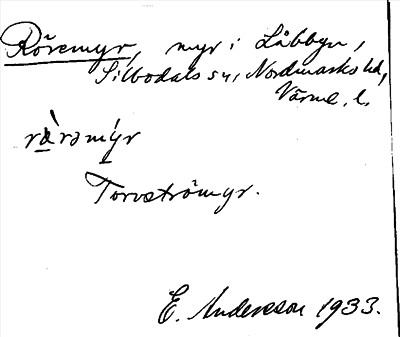 Röremyr, myr i Låbbyn,
Silbodals sn, Nordmarks hd,
Värml. l.
rὰrəmýr
Torvströmyr.
E. Andersson 1933.